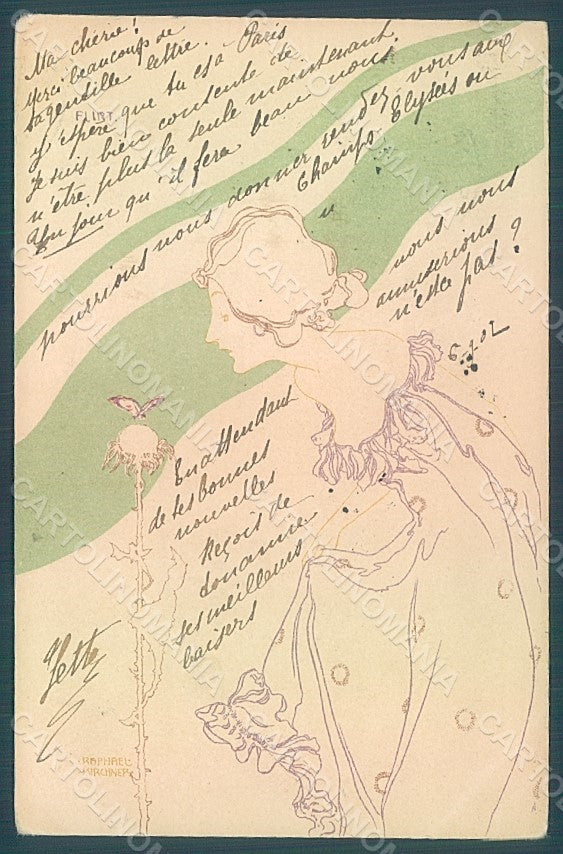 Ma chérie!
Merci beaucoup de
ta gentille lettre.
FLIRT.
J'espère que tu es à Paris
Je suis bien contente de
n'être plus la seule maintenant.
Un jour qu'il fera beau nous
pourrions nous donner rendez vous aux
Champs Elysées ou
nous nous
amuserions
n'est ce pas?
6 02
En attendant
de tes bonnes
nouvelles
Reçois de
ton amie
ses meilleurs
baisers
Yette
RAPHAEL
KIRCHNER
CARTOLINOMANIA